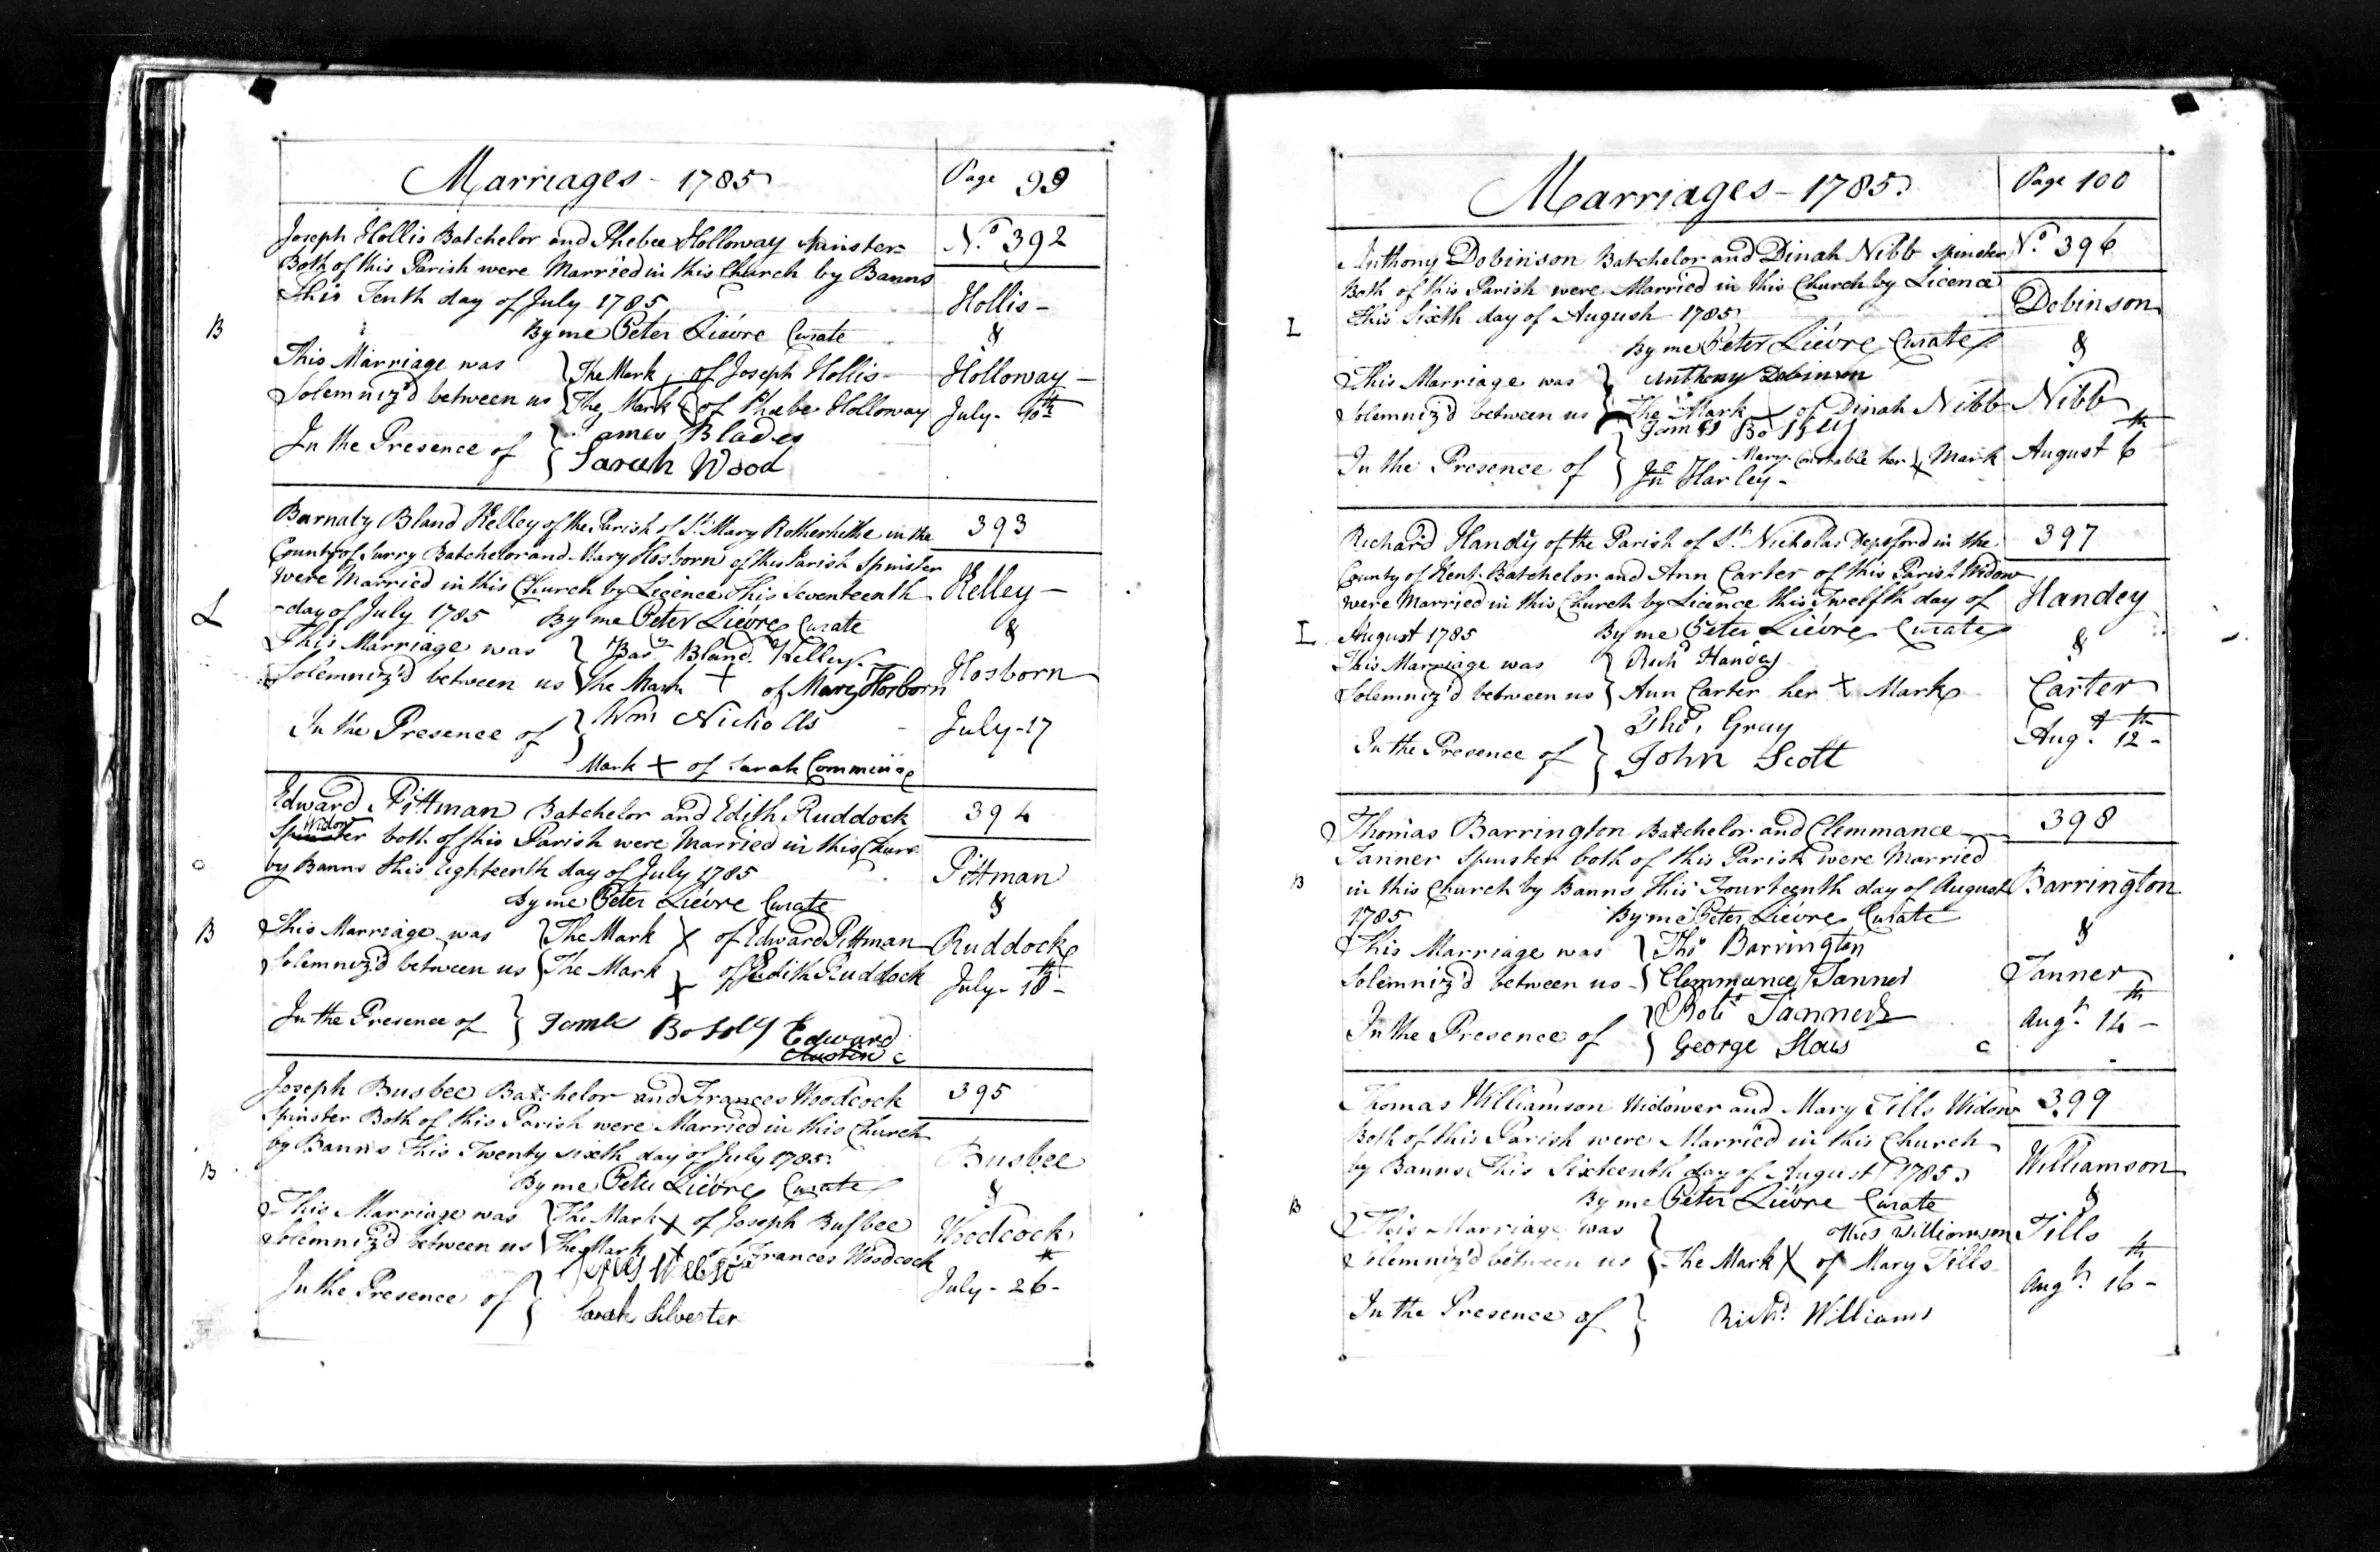 Marriages - 1785
Page 99
Joseph Hollis Batchelor and Phebee Holloway Spinster
Nº 392
Both of this Parish were Married in this Church by Banns
This Tenth day of July 1785
Hollis -
B
By me Peter Lièvre Curate
&
This Marriage was } The Mark of Joseph Hollis
Holloway -
Solemniz'd between us } The Mark of Phœbe Holloway
July - 10th
In the Presence of } James Blades
Sarah Wood
Barnaby Bland Kelley of the Parish of St Mary Rotherhithe in the
393
County of Surry Batchelor and Mary Hosborn of this Parish Spinster
were Married in this Church by Licence This Seventeenth
Kelley -
L
day of July 1785 By me Peter Lièvre Curate
&
This Marriage was } Bary Bland Kelley
Solemniz'd between us } The Mark + of Mary Hosborn
Hosborn
In the Presence of } Wm Nicholls
July - 17
Mark + of Sarah
Edward Pittman Batchelor and Edith Ruddock
394
Widow
Spinster both of this Parish were Married in this Churc
by Banns this Eighteenth day of July 1785
Pittman
By me Peter Lièvre Curate
&
B
This Marriage was } The Mark X of Edward Pittman
Ruddock
Solemniz'd between us } The Mark X of Edith Ruddock
July - 18th -
In the Presence of } James Bosoly Edward
Austin
Joseph Busbee Batchelor and Frances Woodcock
395
Spinster Both of this Parish were Married in this Church
by Banns This Twenty sixth day of July 1785
Busbee
B
By me Peter Lièvre Curate
&
This Marriage was } The Mark X of Joseph Busbee
Woodcock
Solemniz'd between us } The Mark X of Frances Woodcock
In the Presence of }
July - 26th -
Sarah Silvester
Marriages - 1785
Page 100
Anthony Dobinson Batchelor and Dinah Nibb Spinster
Nº 396
Both of this Parish were Married in this Church by Licence
This Sixth day of August 1785
Dobinson
L
By me Peter Lièvre Curate
&
This Marriage was } Anthony Dobinson
Solemniz'd between us } The Mark X of Dinah Nibb
Nibb
James Bosoly
In the Presence of } Mary Constable her X Mark
August 6th
Jn Harley -
Richard Handy of the Parish of St Nicholas Depford in the
397
County of Kent Batchelor and Ann Carter of this Parish Widow
were Married in this Church by Licence this Twelfth day of
Handey
L
August 1785 By me Peter Lièvre Curate
&
This Marriage was } Richd Handey
Solemniz'd between us } Ann Carter her + Mark
Carter
Thos Gray
In the Presence of } John Scott
Augt 12th -
Thomas Barrington Batchelor and Clemmance
398
Tanner Spinster both of this Parish were Married
B
in this Church by Banns This Fourteenth day of August
Barrington
1785 By me Peter Lièvre Curate
&
This Marriage was } Thos Barrington
Solemniz'd between us } Clemmance Tanner
Tanner
In the Presence of } Robt Tanner
Augt 14th -
George
Thomas Williamson Widower and Mary Tills Widow
399
Both of this Parish were Married in this Church
by Banns This Sixteenth day of August 1785
Williamson
B
By me Peter Lièvre Curate
&
This Marriage was } Thos Williamson
Tills
Solemniz'd between us } The Mark X of Mary Tills
In the Presence of } Richd Williams
Augt 16th -